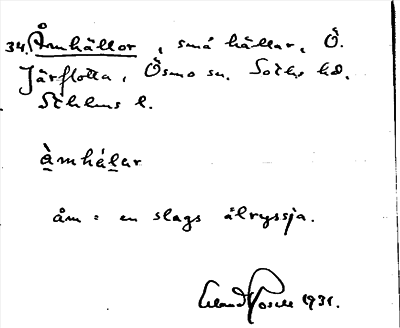 34. Åmhällor, små hällar, Ö.
Järflotta, Ösmo sn. Sotho hd.
Sthlms l.
å̱mhàḻar
åm = en slags ålryssja.
Erland Rosell 1931.